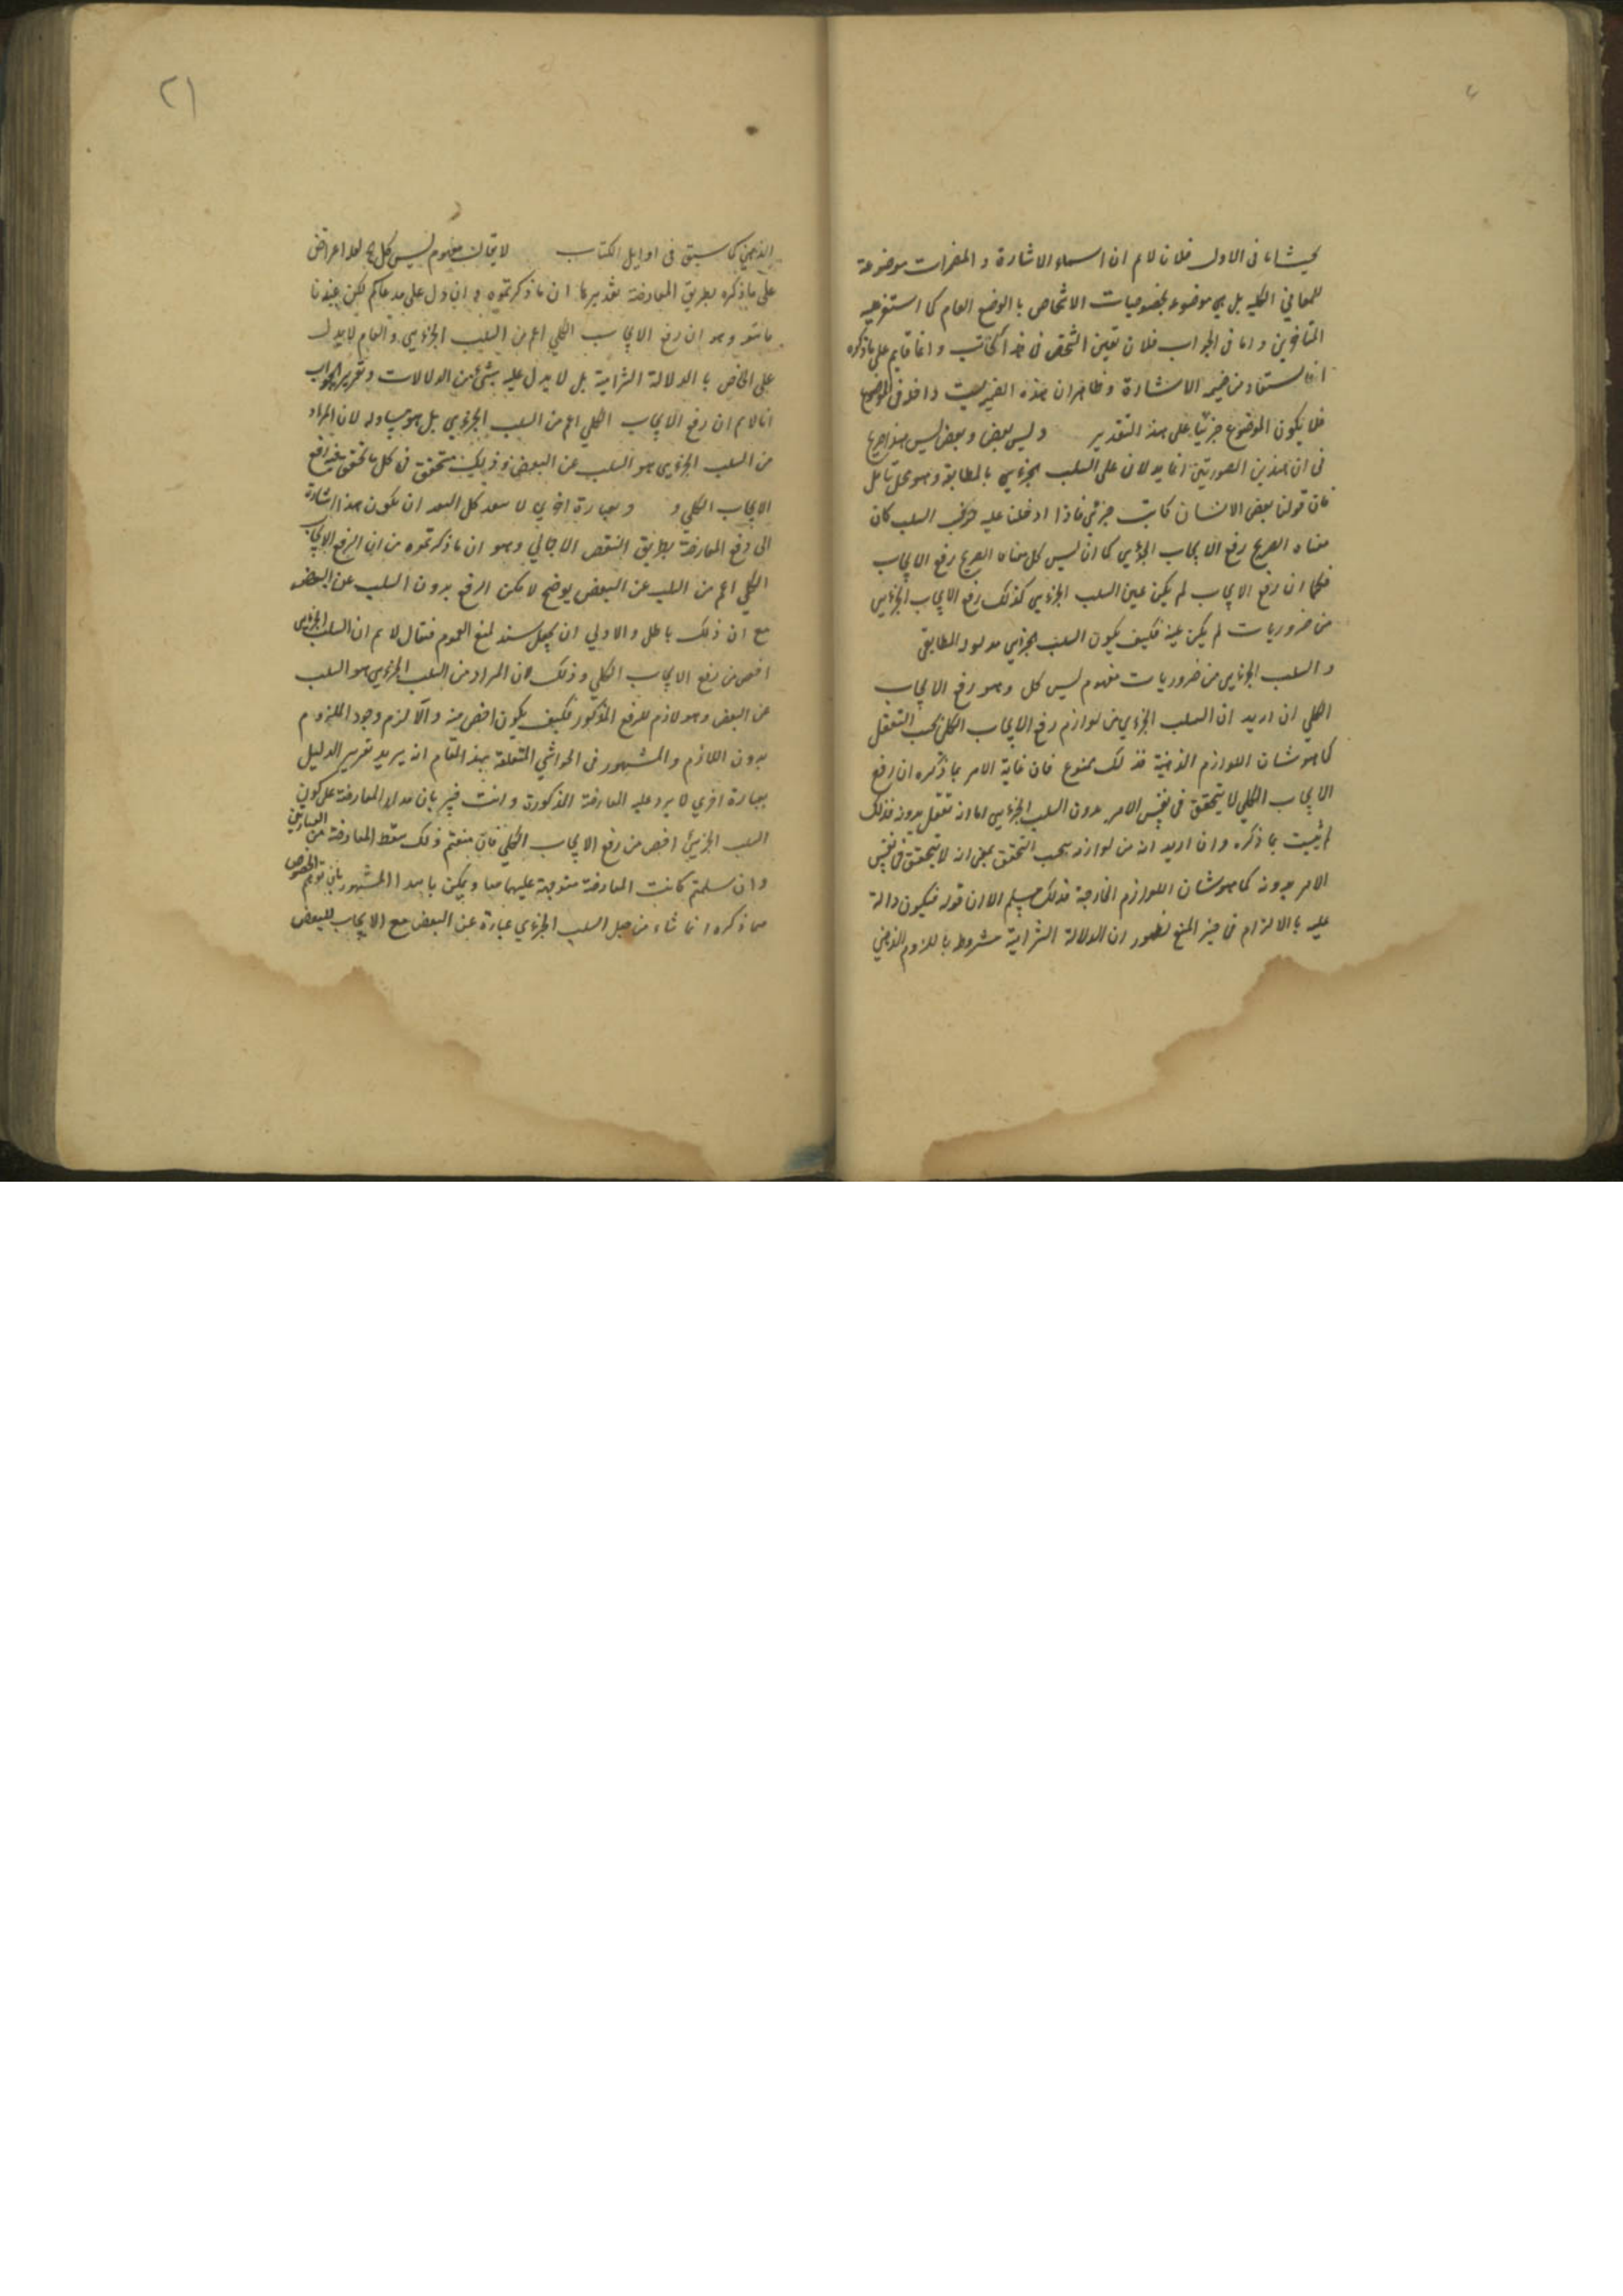 فى الاول فلان لام ان اسماء الاشارة و المضمرات موضوعة
للمعاني الكلية بل هى موضوعة لخصوصيات الاشخاص بالوضع العام كما استقر عليه
المتاخرين و اما فى الجواب فلان تعين الشخص فى هذا الكاتب و انما قايم على ما ذكره
انما يستفاد من ضميمه الاشارة و ظاهر ان هذه الضميمة ليست داخلة فى الموضوع
فلا يكون الموضوع جزئيا على هذا التقدير وليس بعض و بعض ليس هذا صريح
فى ان هذين الصورتين انما يدلان على السلب الجزءيى بالمطابقة و هو محل تامل
فان قولنا بعض الانسان كاتب جزئى فاذا ادخلنا عليه حرف السلب كان
معناه الصريح رفع الايجاب الجزءيى كما ان ليس كل معناه الصريح رفع الايجاب
فكما ان رفع الايجاب لم يكن عين السلب الجزءيى كذلك رفع الايجاب الجزءيى
من ضروريات لم يكن عينه فكيف يكون السلب الجزءيى مدلوله المطابقى
و السلب الجزءيى من ضروريات مفهوم ليس كل و هو رفع الايجاب
الكلي ان اريد ان السلب الجزءيى من لوازم رفع الايجاب الكلى بحسب التعقل
كما هو شان اللوازم الذهنية فذلك ممنوع فان غاية الامر بما ذكره ان رفع
الايجاب الكلي لا يتحقق فى نفس الامر بدون السلب الجزءيى اما انه لا تعقل بدونه فذلك
لم يثبت بما ذكره و ان اريد انه من لوازمه بحسب التحقق بمعنى انه لا يتحقق فى نفس
الامر بدونه كما هو شان اللوازم الخارجية فذلك مسلم الا ان قوله فيكون دالة
عليه بالالتزام فى حيز المنع لظهور ان الدلالة التزامية مشروط باللزوم الذهني
٢١
الذهني كما سبق فى اوايل الكتاب لا يقال مفهوم ليس كل اعتراض
على ما ذكره بطريق المعارضة تقديرها ان ما ذكرتموه و ان دل على مدعاكم لكن عندنا
و هو ان رفع الايجاب الكلي اعم من السلب الجزءيى و العام لا يدل
على الخاص بالدلالة التزامية بل لا يدل عليه بشئ من الدلالات و تقرير الجواب
انا لانم ان رفع الايجاب الكلي اعم من السلب الجزءيى بل هو مساو له لان المراد
من السلب الجزءيى هو السلب عن البعض و ذلك متحقق فى كل ما تحقق فيه رفع
الايجاب الكلي و بعبارة اخري لا يبعد كل البعد ان يكون هذا اشارة
الى دفع المعارضة بطريق النقض الاجمالي و هو ان ما ذكرتموه من ان الرفع الايجاب
الكلي اعم من السلب عن البعض يوضح لامكن الرفع بدون السلب عن البعض
مع ان ذلك باطل و الاولي ان يجعل سند لمنع العموم فيقال لانم ان السلب الجزءيى
اخص من رفع الايجاب الكلي و ذلك لان المراد من السلب الجزءيى هو السلب
عن البعض و هو لازم للرفع المذكور فكيف يكون اخص منه و الا لزم وجود الملزوم
بدون اللازم و المشهور فى الحواشي المتعلقة بهذا المقام انه يريد تقرير الدليل
بعبارة اخري لا يرد عليه المعارضة المذكورة و انت خبير بان مدار المعارضة على كون
السلب الجزئى اخص من رفع الايجاب الكلي فان منعتم ذلك سقط المعارضة عن العبارتين
و ان سلمتم كانت المعارضة متوجهة عليهما معا و يمكن المشهور بان توهم الخصوص
مما ذكره انما نشاء من جعل السلب الجزءي عبارة عن البعض مع الايجاب للبعض